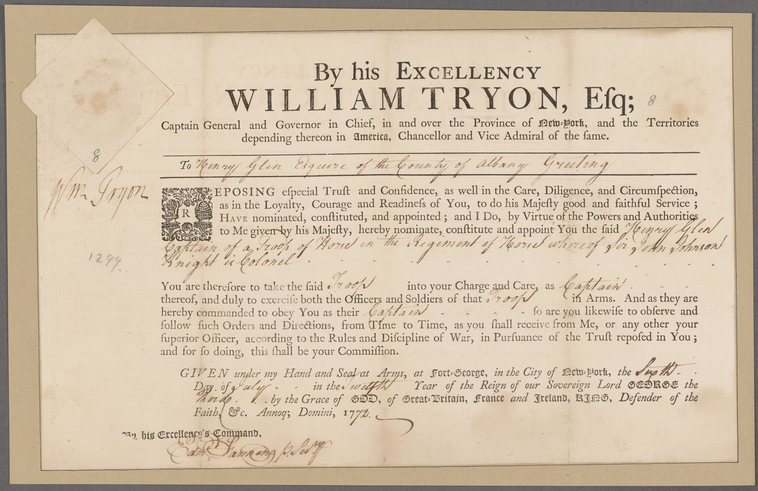 By his EXCELLENCY
WILLIAM TRYON, Eſq; 8
Captain General and Governor in Chief, in and over the Province of New-York, and the Territories
depending thereon in America, Chancellor and Vice Admiral of the ſame.
8
Wm Tryon
1299
To Henry Glen Esquire of the County of Albany Greeting
REPOSING eſpecial Truſt and Confidence, as well in the Care, Diligence, and Circumſpection,
as in the Loyalty, Courage and Readineſs of You, to do his Majeſty good and faithful Service;
HAVE nominated, conſtituted, and appointed; and I Do, by Virtue of the Powers and Authorities
to Me given by his Majeſty, hereby nominate, conſtitute and appoint You the ſaid Henry Glen
Captain of a Troop of Horse in the Regiment of Horse whereof Sir John Johnson
Knight is Colonel
You are therefore to take the ſaid Troop into your Charge and Care, as Captain
thereof, and duly to exerciſe both the Officers and Soldiers of that Troop in Arms. And as they are
hereby commanded to obey You as their Captain ſo are you likewiſe to obſerve and
follow ſuch Orders and Directions, from Time to Time, as you ſhall receive from Me, or any other your
ſuperior Officer, according to the Rules and Diſcipline of War, in Purſuance of the Truſt repoſed in You;
and for ſo doing, this ſhall be your Commiſſion.
GIVEN under my Hand and Seal at Arms, at Fort-George, in the City of New-York, the Sixth
Day of July in the Twelfth Year of the Reign of our Sovereign Lord GEORGE the
Third by the Grace of GOD, of Great-Britain, France and Ireland, KING, Defender of the
Faith, &c. Annoq; Domini, 1772.
By his Excellency's Command,
Edm Fanning